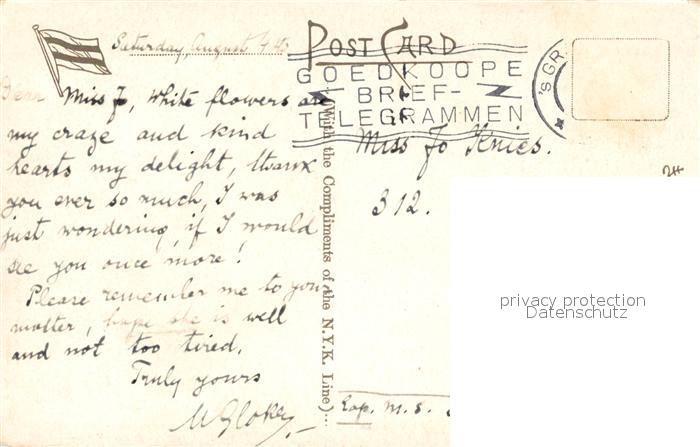 Saturday, August
POST CARD
GOEDKOOPE
BRIEF-
TELEGRAMMEN
'S GR
Dear Miss Jo, White flowers are
my craze and kind
hearts my delight, thank
you ever so much, I was
just wondering if I would
see you once more!
Please remember me to your
mother, hope she is well
and not too tired.
Truly yours
(With the Compliments of the N.Y.K. Line)...
Miss Jo Knies.
312.
privacy protection
Datenschutz
m.s.